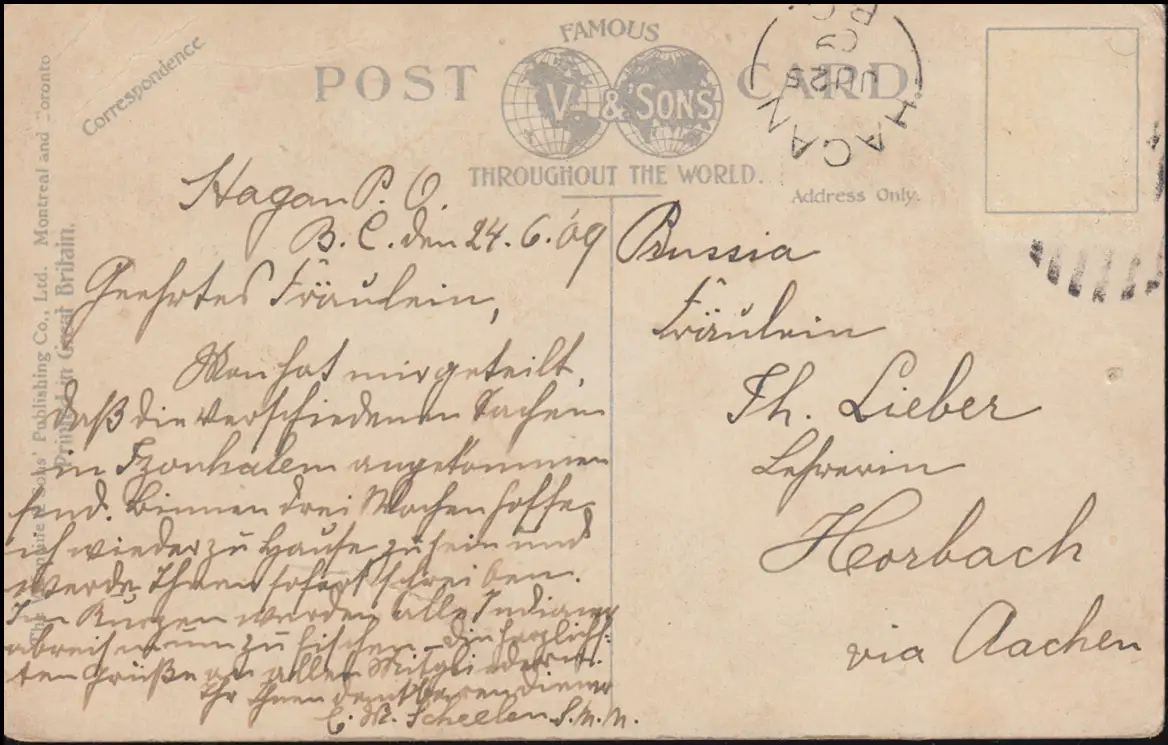 FAMOUS
POST CARD
V. & SONS
THROUGHOUT THE WORLD.
Correspondence
Address Only.
HAGAN
JU 25
09
B.C.
Sons' Publishing Co., Ltd. Montreal and Toronto
Printed in Great Britain.
Hagan P. O.
B. C. den 24. 6. 09
Geehrtes Fräulein,
Man hat mir geteilt,
daß die verschiedenen Sachen
in angekommen
sind. Binnen drei Wochen hoffe
ich wieder zu Hause zu sein und
werde Ihnen sofort schreiben.
Im Kurzen werden alle Indianer
abreisen um zu fischen. Die herzlich-
sten Grüße an alle
Ihr Ihnen Diener
E. M. Scheelen S.M.M.
Prussia
Fräulein
Th. Lieber
Lehrerin
Horbach
via Aachen